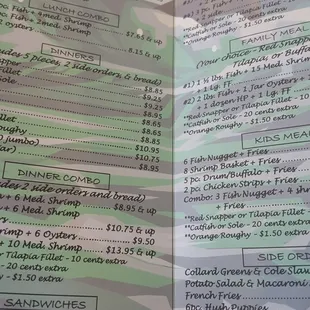 LUNCH COMBO
pc. Fish + 4 med. Shrimp
$7.65 & up
Fish + 6 oysters
$8.15 & up
DINNERS
5 pieces, 2 side orders, & bread)
$8.85
$9.25
$8.95
$9.25
$8.65
$8.65
jumbo)
$10.95
$10.75
$8.95
DINNER COMBO
2 side orders and bread)
+ 6 Med. Shrimp
$8.95 & up
$10.75 & up
+ 6 Oysters
$9.50
+ 10 Med. Shrimp
$13.95 & up
or Tilapia Fillet - 10 cents extra
- 20 cents extra
- $1.50 extra
SANDWICHES
pc. Fish +
*Red Snapper or Tilapia Fillet
*Catfish or Sole - 20 cents extra
*Orange Roughy - $1.50 extra
FAMILY MEAL
(Your choice - Red Snapper
Tilapia, or Buffa
#1) 1 ½ lb. Fish + 15 Med Shrimp
+ 1 Lg. FF
#2) 2 lbs. Fish + 1 Jar Oysters +
+ 1 dozen HP + 1 Lg. FF
**Red Snapper or Tilapia Fillet - 10
**Catfish or Sole - 20 cents extra
**Orange Roughy - $1.50 extra
KIDS MEA
6 Fish Nugget + Fries
8 Shrimp Basket + Fries
5 pc. Drum/Buffalo + Fries
2 pc. Chicken Strips + Fries
Combo: 3 Fish Nugget + 4 shr
+ Fries
**Red Snapper or Tilapia Fillet
**Catfish or Sole - 20 cents extra
**Orange Roughy - $1.50 extra
SIDE ORD
Collard Greens & Cole Slaw
Potato Salad & Macaroni
French Fries
6pc. Hush Puppies